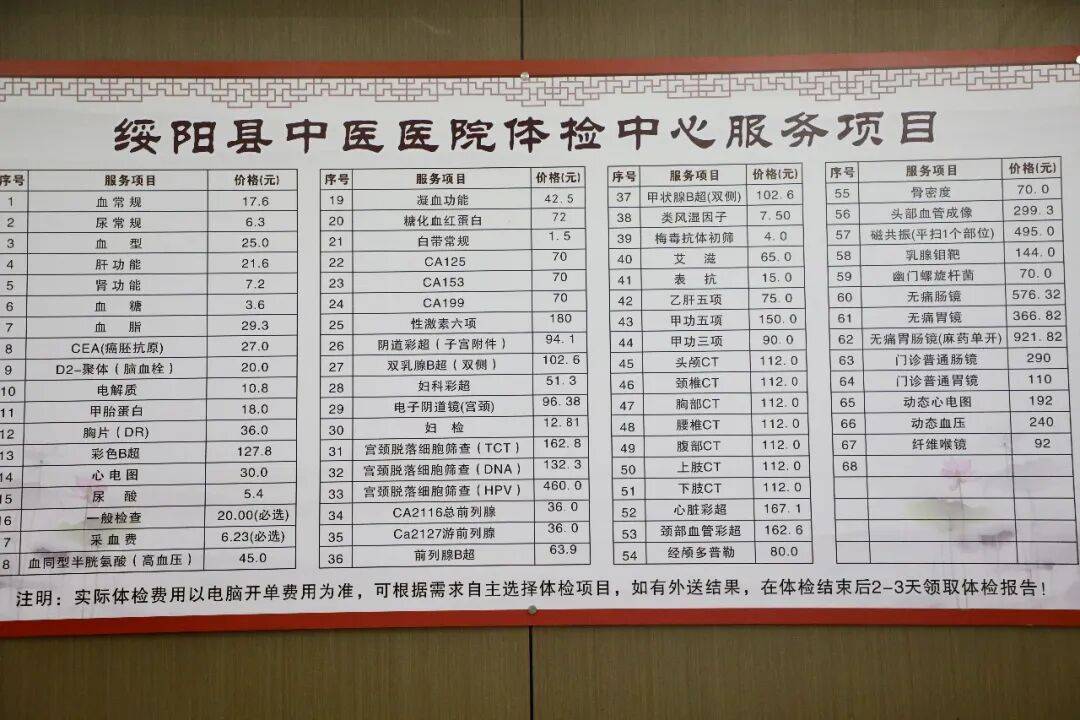 绥阳县中医医院体检中心服务项目
序号 服务项目 价格(元)
1 血常规 17.6
2 尿常规 6.3
3 血 型 25.0
4 肝功能 21.6
5 肾功能 7.2
6 血 糖 3.6
7 血 脂 29.3
8 CEA(癌胚抗原) 27.0
9 D2-聚体（脑血栓） 20.0
10 电解质 10.8
11 甲胎蛋白 18.0
12 胸片（DR) 36.0
13 彩色B超 127.8
14 心电图 30.0
15 尿 酸 5.4
16 一般检查 20.00(必选)
7 采血费 6.23(必选)
8 血同型半胱氨酸（高血压） 45.0
序号 服务项目 价格(元)
19 凝血功能 42.5
20 糖化血红蛋白 72
21 白带常规 1.5
22 CA125 70
23 CA153 70
24 CA199 70
25 性激素六项 180
26 阴道彩超（子宫附件） 94.1
27 双乳腺B超（双侧） 102.6
28 妇科彩超 51.3
29 电子阴道镜(宫颈) 96.38
30 妇 检 12.81
31 宫颈脱落细胞筛查（TCT） 162.8
32 宫颈脱落细胞筛查（DNA） 132.3
33 宫颈脱落细胞筛查（HPV） 460.0
34 CA2116总前列腺 36.0
35 Ca2127游前列腺 36.0
36 前列腺B超 63.9
序号 服务项目 价格(元)
37 甲状腺B超(双侧) 102.6
38 类风湿因子 7.50
39 梅毒抗体初筛 4.0
40 艾 滋 65.0
41 表 抗 15.0
42 乙肝五项 75.0
43 甲功五项 150.0
44 甲功三项 90.0
45 头颅CT 112.0
46 颈椎CT 112.0
47 胸部CT 112.0
48 腰椎CT 112.0
49 腹部CT 112.0
50 上肢CT 112.0
51 下肢CT 112.0
52 心脏彩超 167.1
53 颈部血管彩超 162.6
54 经颅多普勒 80.0
序号 服务项目 价格(元)
55 骨密度 70.0
56 头部血管成像 299.3
57 磁共振(平扫1个部位) 495.0
58 乳腺钼靶 144.0
59 幽门螺旋杆菌 70.0
60 无痛肠镜 576.32
61 无痛胃镜 366.82
62 无痛胃肠镜(麻药单开) 921.82
63 门诊普通肠镜 290
64 门诊普通胃镜 110
65 动态心电图 192
66 动态血压 240
67 纤维喉镜 92
68
注明：实际体检费用以电脑开单费用为准，可根据需求自主选择体检项目，如有外送结果，在体检结束后2-3天领取体检报告！